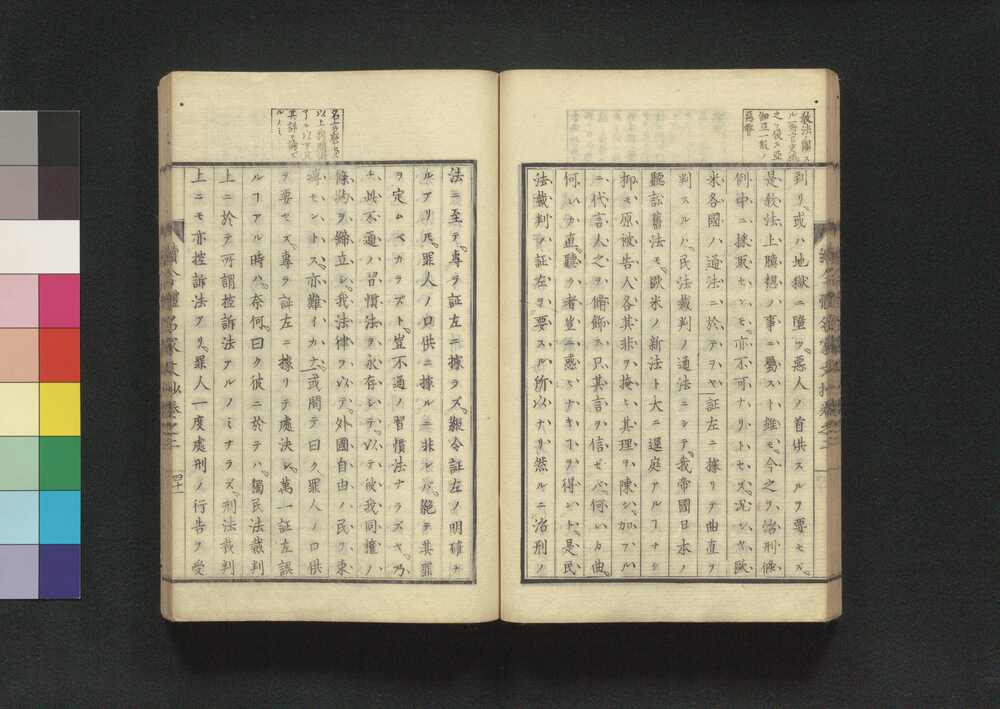 到リ。或ハ地獄ニ墮ツ。惡人ノ首供スルヲ要セズ。
是教法上臆想ノ事ニ屬スト雖モ。今之ヲ治刑條
例中ニ採取センモ。亦不可ナリトセズ。況ンヤ歐
米各國ハ通法ニ於テヲヤ証左ニ據リテ曲直ヲ
判スルハ。民法裁判ノ通法ニシテ。我帝國日本ノ
聽訟舊法モ。歐米ノ新法ト大ニ逕庭アルヿナシ
抑モ原被告人各其非ヲ掩ヒ其理ヲ陳シ。加フル
ニ代言人之ヲ脩飾ス只其言ヲ信ゼバ。何レカ曲。
何レカ直。聽ク者豈ニ惑ヒナキヿヲ得ント。是民
法裁判ハ証左ヲ要スル所以ナリ然ルニ治刑ノ
法ニ至テ。專ラ証左ニ據ラズ。縱令証左ノ明確ナ
ルアリ𪜈。罪人ノ口供ニ據ルニ非レバ。絕テ其罪
ヲ定ムベカラズト。豈不通ノ習慣法ナラズヤ。乃
チ此不通ノ習慣法ヲ永存シテ。以テ彼我同權ノ
條約ヲ締立シ。我法律ヲ以テ。外國自由ノ民ヲ束
縛セントス。亦難イカナ。或問テ曰ク罪人ノ口供
ヲ要セズ。專ラ証左ニ據リテ處決シ。萬一証左誤
ルヿアル時ハ。奈何。曰ク彼ニ於テハ。獨民法裁判
上ニ於テ所謂控訴法アルノミナラズ。刑法裁判
上ニモ亦控訴法アリ。罪人一度處刑ノ行告ヲ受
四十一